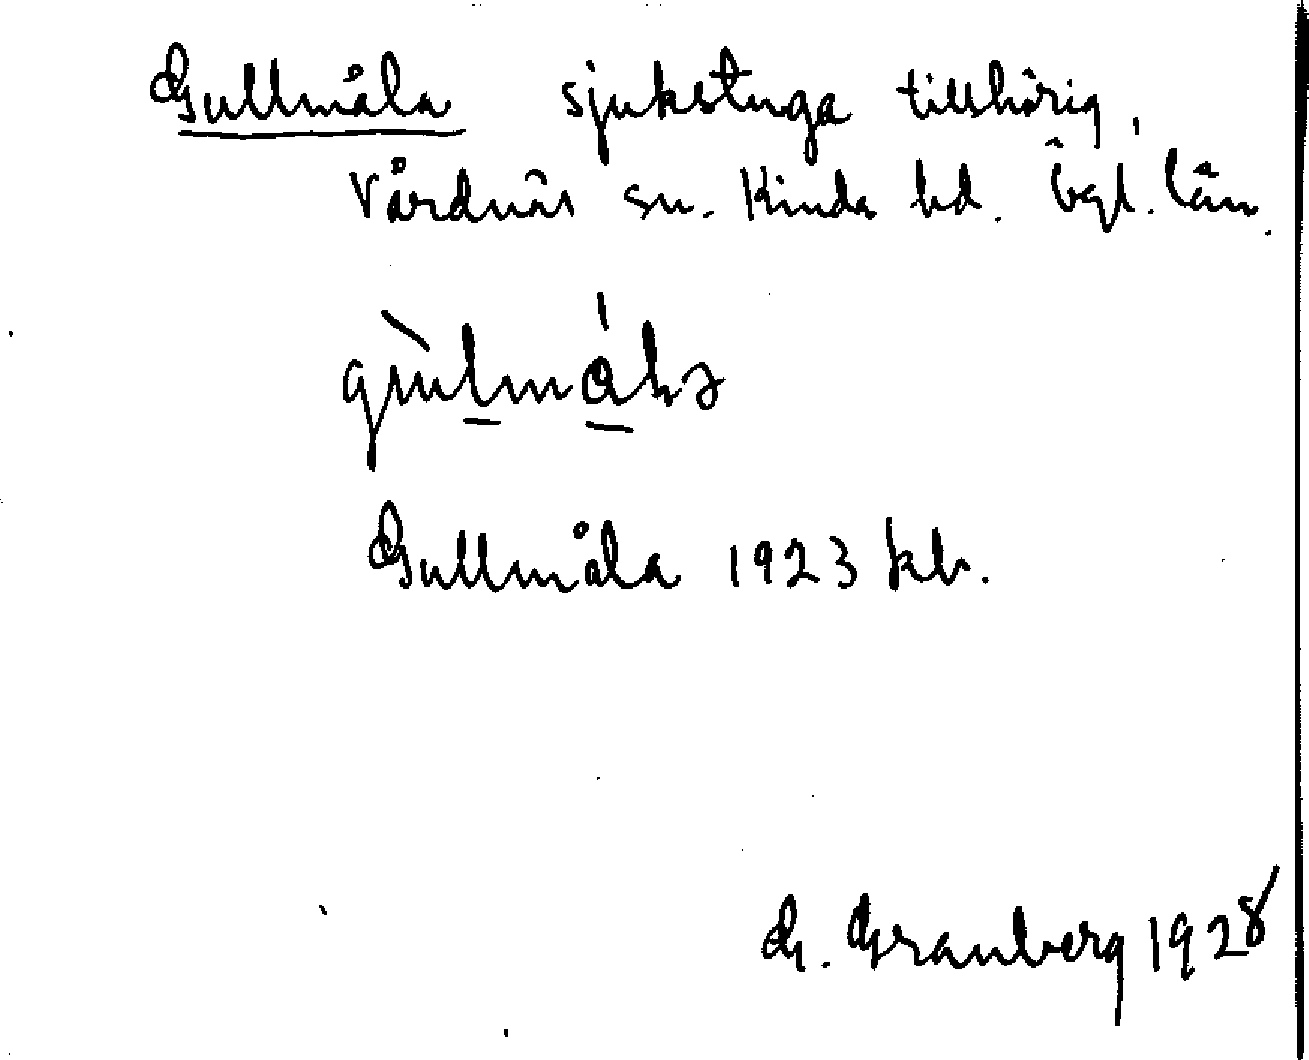 Gullmåla sjukstuga tillhörig
Vårdnäs sn. Kinda hd. Ögl. län.
Gullmåla 1923 kb.
G. Granberg 1928